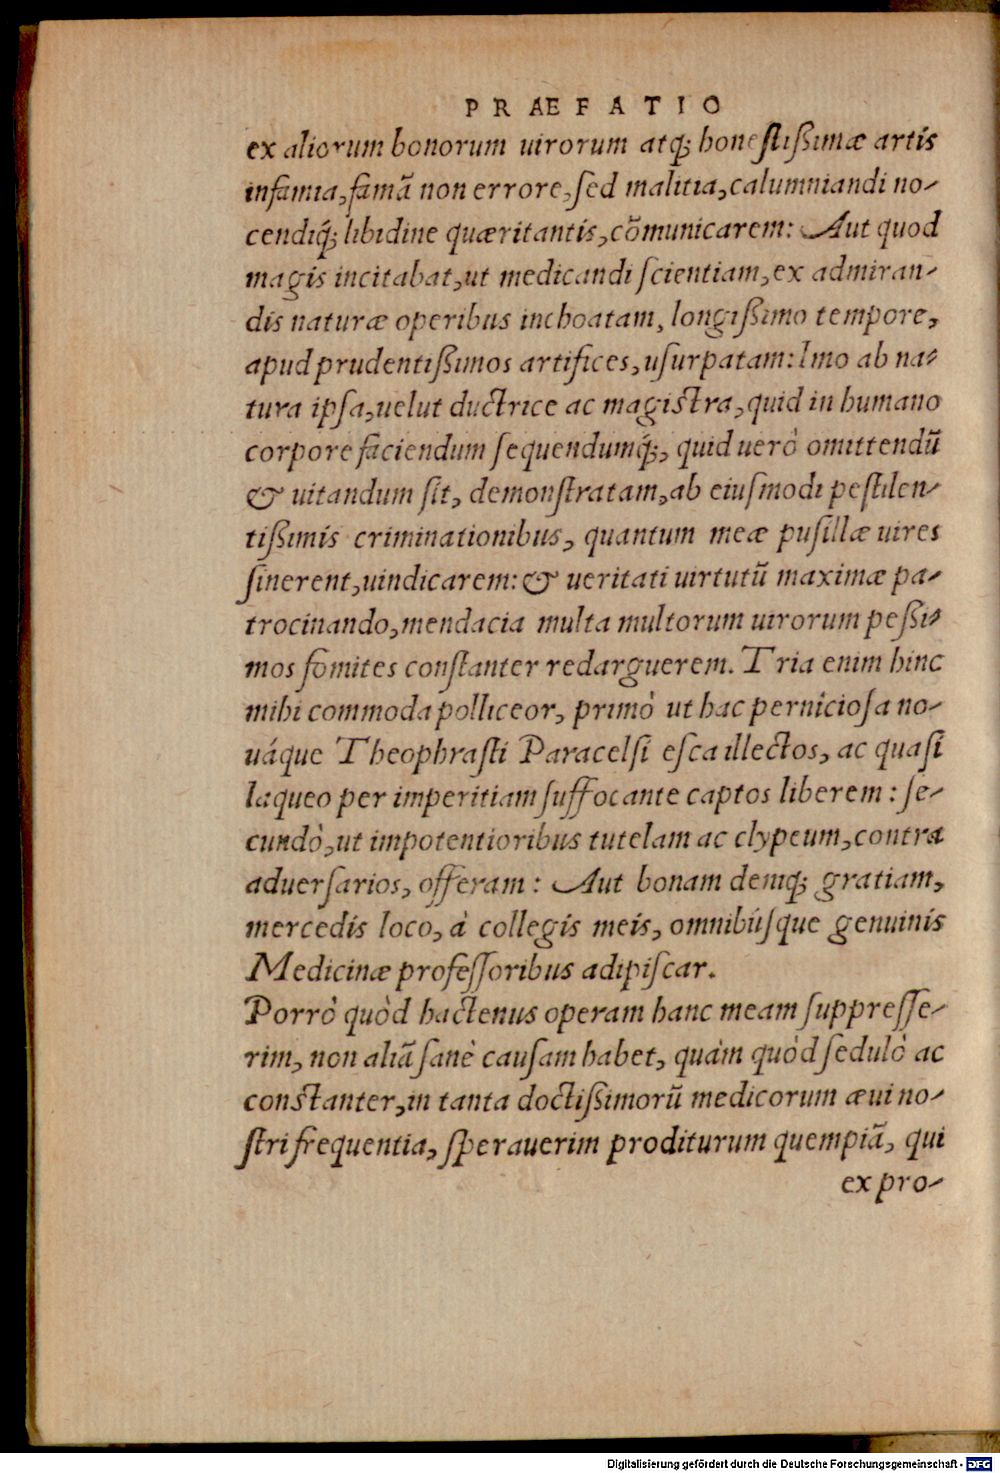 PRAEFATIO
ex aliorum bonorum uirorum atq́; honestißimæ artis
infamia, famã non errore, sed malitia, calumniandi no-
cendiq́; libidine quæritantis, cõmunicarem: Aut quod
magis incitabat, ut medicandi scientiam, ex admiran-
dis naturæ operibus inchoatam, longißimo tempore,
apud prudentißimos artifices, usurpatam: Imo ab na-
tura ipsa, uelut ductrice ac magistra, quid in humano
corpore faciendum sequendumq́;, quid uerò omittendũ
& uitandum sit, demonstratam, ab eiusmodi pestilen-
tißimis criminationibus, quantum meæ pusillæ uires
sinerent, uindicarem: & ueritati uirtutũ maximæ pa-
trocinando, mendacia multa multorum uirorum peßi-
mos fomites constanter redarguerem. Tria enim hinc
mihi commoda polliceor, primò ut hac perniciosa no-
uáque Theophrasti Paracelsi esca illectos, ac quasi
laqueo per imperitiam suffocante captos liberem: se-
cundò, ut impotentioribus tutelam ac clypeum, contra
aduersarios, offeram: Aut bonam deniq́; gratiam,
mercedis loco, à collegis meis, omnibúsque genuinis
Medicinæ professoribus adipiscar.
Porrò quòd hactenus operam hanc meam suppresse-
rim, non aliã sanè causam habet, quàm quòd sedulò ac
constanter, in tanta doctißimorũ medicorum æui no-
stri frequentia, sperauerim proditurum quempiã, qui
ex pro-
Digitalisierung gefördert durch die Deutsche Forschungsgemeinschaft - DFG